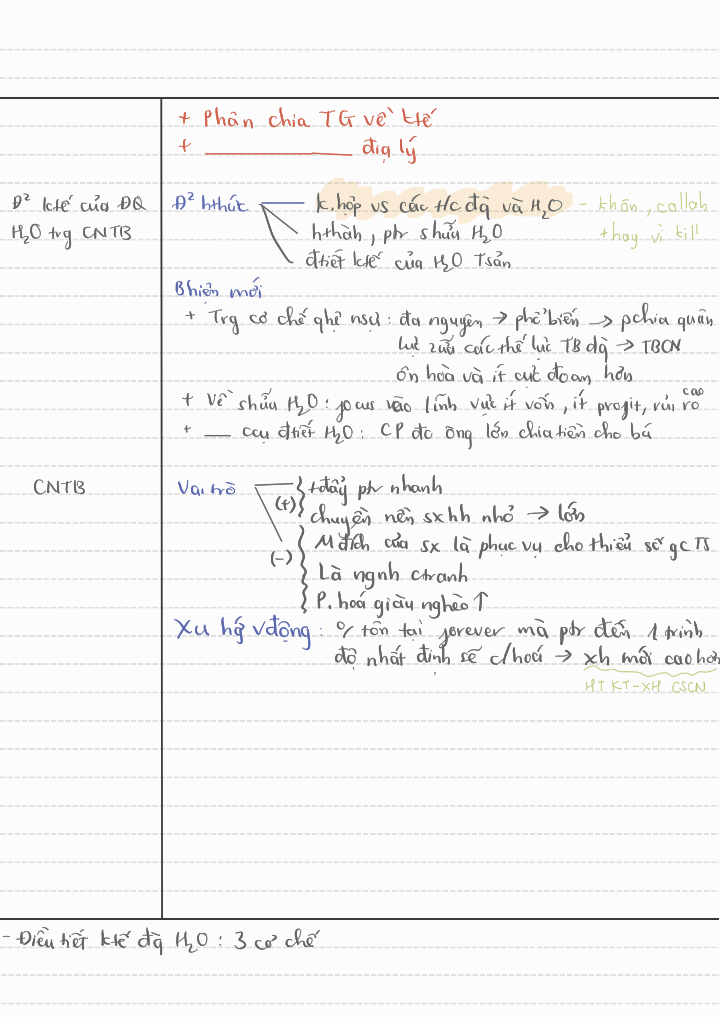 + Phân chia TG về ktế
+ ____________ địa lý
Đ² ktế của ĐQ
H₂O trg CNTB
Đ² hthức
k.hợp vs các t/c đq và H₂O
- khôn, collab
thay vì kill
hthành, ptr shữu H₂O
đtiết ktế của H₂O Tsản
Bhiện mới
+ Trg cơ chế qhệ nsự: đa nguyên → phổ biến → pchia quân
lực giữa các thế lực TB đq → TBCN
ôn hoà và ít cực đoan hơn
+ Về shữu H₂O: focus vào lĩnh vực ít vốn, ít profit, rủi ro
cao
+ __ ccụ đtiết H₂O: CP do ông lớn chia tiền cho bá
CNTB
Vai trò
(+)
tđẩy ptr nhanh
chuyển nền sx hh nhỏ → lớn
(-)
Mđích của sx là phục vụ cho thiểu số gc TS
Là ngnh ctranh
P. hoá giàu nghèo ↑
Xu hg vđộng: 0/ tồn tại forever mà ptr đến 1 trình
độ nhất định sẽ c/hoá → xh mới cao hơn
HT KT-XH CSCN
- Điều tiết ktế đq H₂O: 3 cơ chế